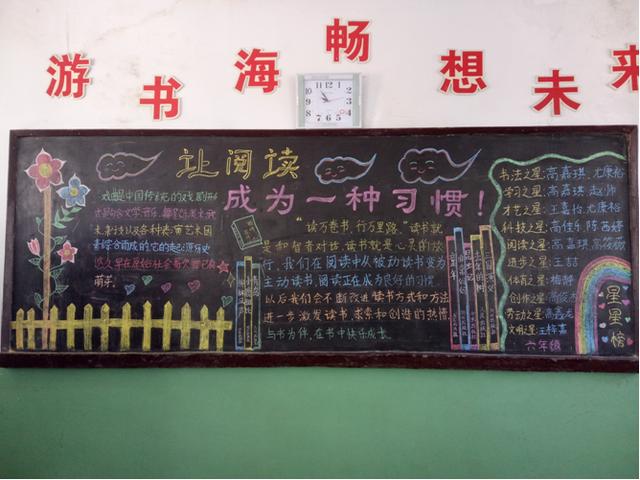 游书海畅想未来
让阅读
成为一种习惯！
戏曲是中国传统的戏剧形
式
未来技以及各种表演艺术因
素综合而成的它的起源历史
悠久早在原始社会
萌芽
"读万卷书，行万里路"读书就
是和智者对话，读书就是心灵的旅
行，我们在阅读中从被动读书变为
主动读书，阅读正在成为良好的习惯
以后我们会不断改进读书方式和方法
进一步激发读书，求索和创造的热情
与书为伴，在书中快乐成长。
书法之星：高嘉琪，尤康裕
学习之星：
才艺之星：王嘉怡，尤康裕
科技之星：高佳乐，陈
阅读之星：高嘉琪，高筱
进步之星：王喆
体育之星：
创作之星：高
劳动之星：高鑫龙
文明之星：王
六年级
星星榜